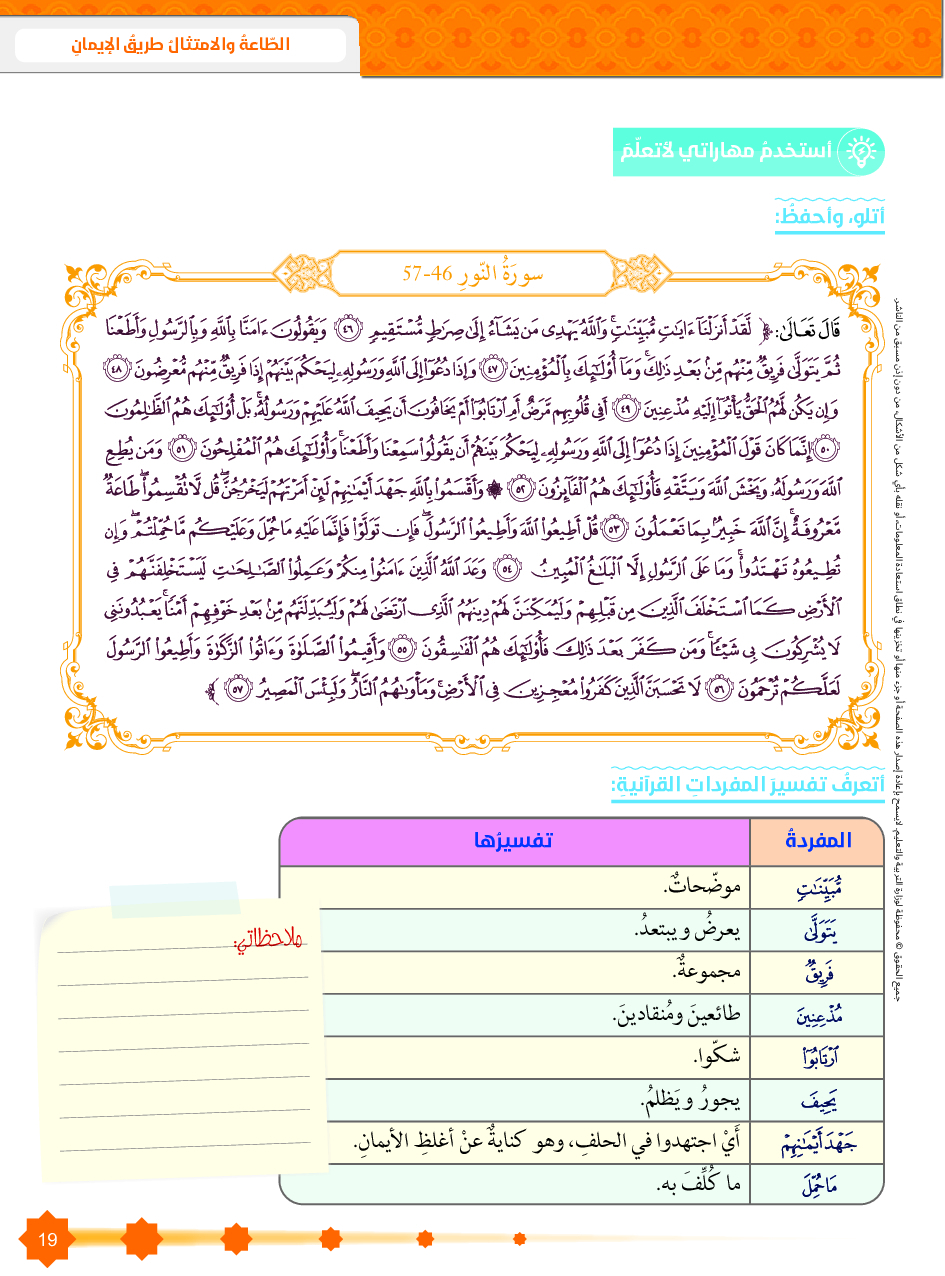 الطّاعةُ والامتثالُ طريقُ الإيمانِ
أستخدمُ مهاراتي لأتعلّمَ
أتلو، وأحفظُ:
سورَةُ النّورِ 46-57
قَالَ تَعَالَىٰ: ﴿ لَّقَدۡ أَنزَلۡنَآ ءَايَٰتٖ مُّبَيِّنَٰتٖۚ وَٱللَّهُ يَهۡدِي مَن يَشَآءُ إِلَىٰ صِرَٰطٖ مُّسۡتَقِيمٖ ٤٦ وَيَقُولُونَ ءَامَنَّا بِٱللَّهِ وَبِٱلرَّسُولِ وَأَطَعۡنَا
ثُمَّ يَتَوَلَّىٰ فَرِيقٞ مِّنۡهُم مِّنۢ بَعۡدِ ذَٰلِكَۚ وَمَآ أُوْلَٰٓئِكَ بِٱلۡمُؤۡمِنِينَ ٤٧ وَإِذَا دُعُوٓاْ إِلَى ٱللَّهِ وَرَسُولِهِۦ لِيَحۡكُمَ بَيۡنَهُمۡ إِذَا فَرِيقٞ مِّنۡهُم مُّعۡرِضُونَ ٤٨
وَإِن يَكُن لَّهُمُ ٱلۡحَقُّ يَأۡتُوٓاْ إِلَيۡهِ مُذۡعِنِينَ ٤٩ أَفِي قُلُوبِهِم مَّرَضٌ أَمِ ٱرۡتَابُوٓاْ أَمۡ يَخَافُونَ أَن يَحِيفَ ٱللَّهُ عَلَيۡهِمۡ وَرَسُولُهُۥۚ بَلۡ أُوْلَٰٓئِكَ هُمُ ٱلظَّٰلِمُونَ
٥٠ إِنَّمَا كَانَ قَوۡلَ ٱلۡمُؤۡمِنِينَ إِذَا دُعُوٓاْ إِلَى ٱللَّهِ وَرَسُولِهِۦ لِيَحۡكُمَ بَيۡنَهُمۡ أَن يَقُولُواْ سَمِعۡنَا وَأَطَعۡنَاۚ وَأُوْلَٰٓئِكَ هُمُ ٱلۡمُفۡلِحُونَ ٥١ وَمَن يُطِعِ
ٱللَّهَ وَرَسُولَهُۥ وَيَخۡشَ ٱللَّهَ وَيَتَّقۡهِ فَأُوْلَٰٓئِكَ هُمُ ٱلۡفَآئِزُونَ ٥٢ ۞ وَأَقۡسَمُواْ بِٱللَّهِ جَهۡدَ أَيۡمَٰنِهِمۡ لَئِنۡ أَمَرۡتَهُمۡ لَيَخۡرُجُنَّۖ قُل لَّا تُقۡسِمُواْۖ طَاعَةٞ
مَّعۡرُوفَةٌۚ إِنَّ ٱللَّهَ خَبِيرُۢ بِمَا تَعۡمَلُونَ ٥٣ قُلۡ أَطِيعُواْ ٱللَّهَ وَأَطِيعُواْ ٱلرَّسُولَۖ فَإِن تَوَلَّوۡاْ فَإِنَّمَا عَلَيۡهِ مَا حُمِّلَ وَعَلَيۡكُم مَّا حُمِّلۡتُمۡۖ وَإِن
تُطِيعُوهُ تَهۡتَدُواْۚ وَمَا عَلَى ٱلرَّسُولِ إِلَّا ٱلۡبَلَٰغُ ٱلۡمُبِينُ ٥٤ وَعَدَ ٱللَّهُ ٱلَّذِينَ ءَامَنُواْ مِنكُمۡ وَعَمِلُواْ ٱلصَّٰلِحَٰتِ لَيَسۡتَخۡلِفَنَّهُمۡ فِي
ٱلۡأَرۡضِ كَمَا ٱسۡتَخۡلَفَ ٱلَّذِينَ مِن قَبۡلِهِمۡ وَلَيُمَكِّنَنَّ لَهُمۡ دِينَهُمُ ٱلَّذِي ٱرۡتَضَىٰ لَهُمۡ وَلَيُبَدِّلَنَّهُم مِّنۢ بَعۡدِ خَوۡفِهِمۡ أَمۡنٗاۚ يَعۡبُدُونَنِي
لَا يُشۡرِكُونَ بِي شَيۡـٔٗاۚ وَمَن كَفَرَ بَعۡدَ ذَٰلِكَ فَأُوْلَٰٓئِكَ هُمُ ٱلۡفَٰسِقُونَ ٥٥ وَأَقِيمُواْ ٱلصَّلَوٰةَ وَءَاتُواْ ٱلزَّكَوٰةَ وَأَطِيعُواْ ٱلرَّسُولَ
لَعَلَّكُمۡ تُرۡحَمُونَ ٥٦ لَا تَحۡسَبَنَّ ٱلَّذِينَ كَفَرُواْ مُعۡجِزِينَ فِي ٱلۡأَرۡضِۚ وَمَأۡوَىٰهُمُ ٱلنَّارُۖ وَلَبِئۡسَ ٱلۡمَصِيرُ ٥٧ ﴾
أتعرفُ تفسيرَ المفرداتِ القرآنيةِ:
المفردةُ تفسيرُها
مُّبَيِّنَٰتٖ موضّحاتٌ.
يَتَوَلَّىٰ يعرضُ ويبتعدُ.
فَرِيقٞ مجموعةٌ.
مُذۡعِنِينَ طائعينَ ومُنقادينَ.
ٱرۡتَابُوٓاْ شكّوا.
يَحِيفَ يجورُ ويَظلمُ.
جَهۡدَ أَيۡمَٰنِهِمۡ أَيْ اجتهدوا في الحلفِ، وهو كنايةٌ عنْ أغلظِ الأيمانِ.
مَا حُمِّلَ ما كُلِّفَ به.
ملاحظاتي:
جميع الحقوق © محفوظة لوزارة التربية والتعليم. لايسمح بإعادة إصدار هذه الصفحة أو جزء منها أو تخزينها في نطاق استعادة المعلومات، أو نقله بأي شكل من الأشكال، من دون إذن مسبق من الناشر.
19